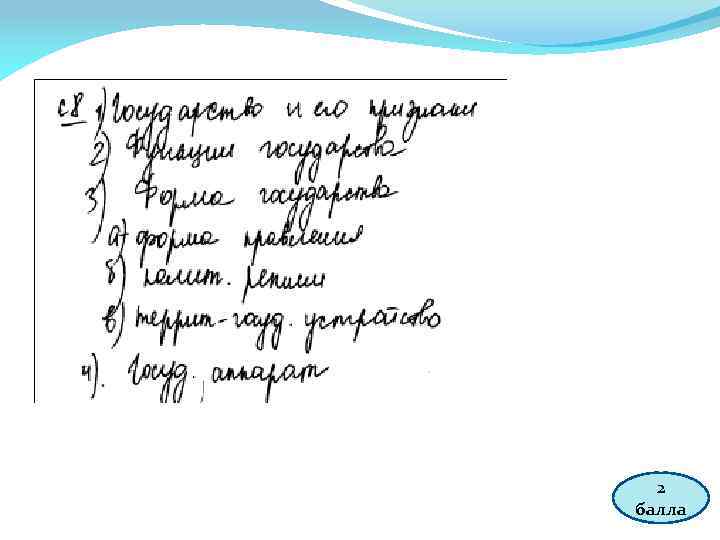 С8 1) Государство и его признаки
2) Функции государства
3) Форма государства
а) форма правления
б) полит. режим
в) террит-гоуд. устройство
4). Госуд. аппарат
2
балла